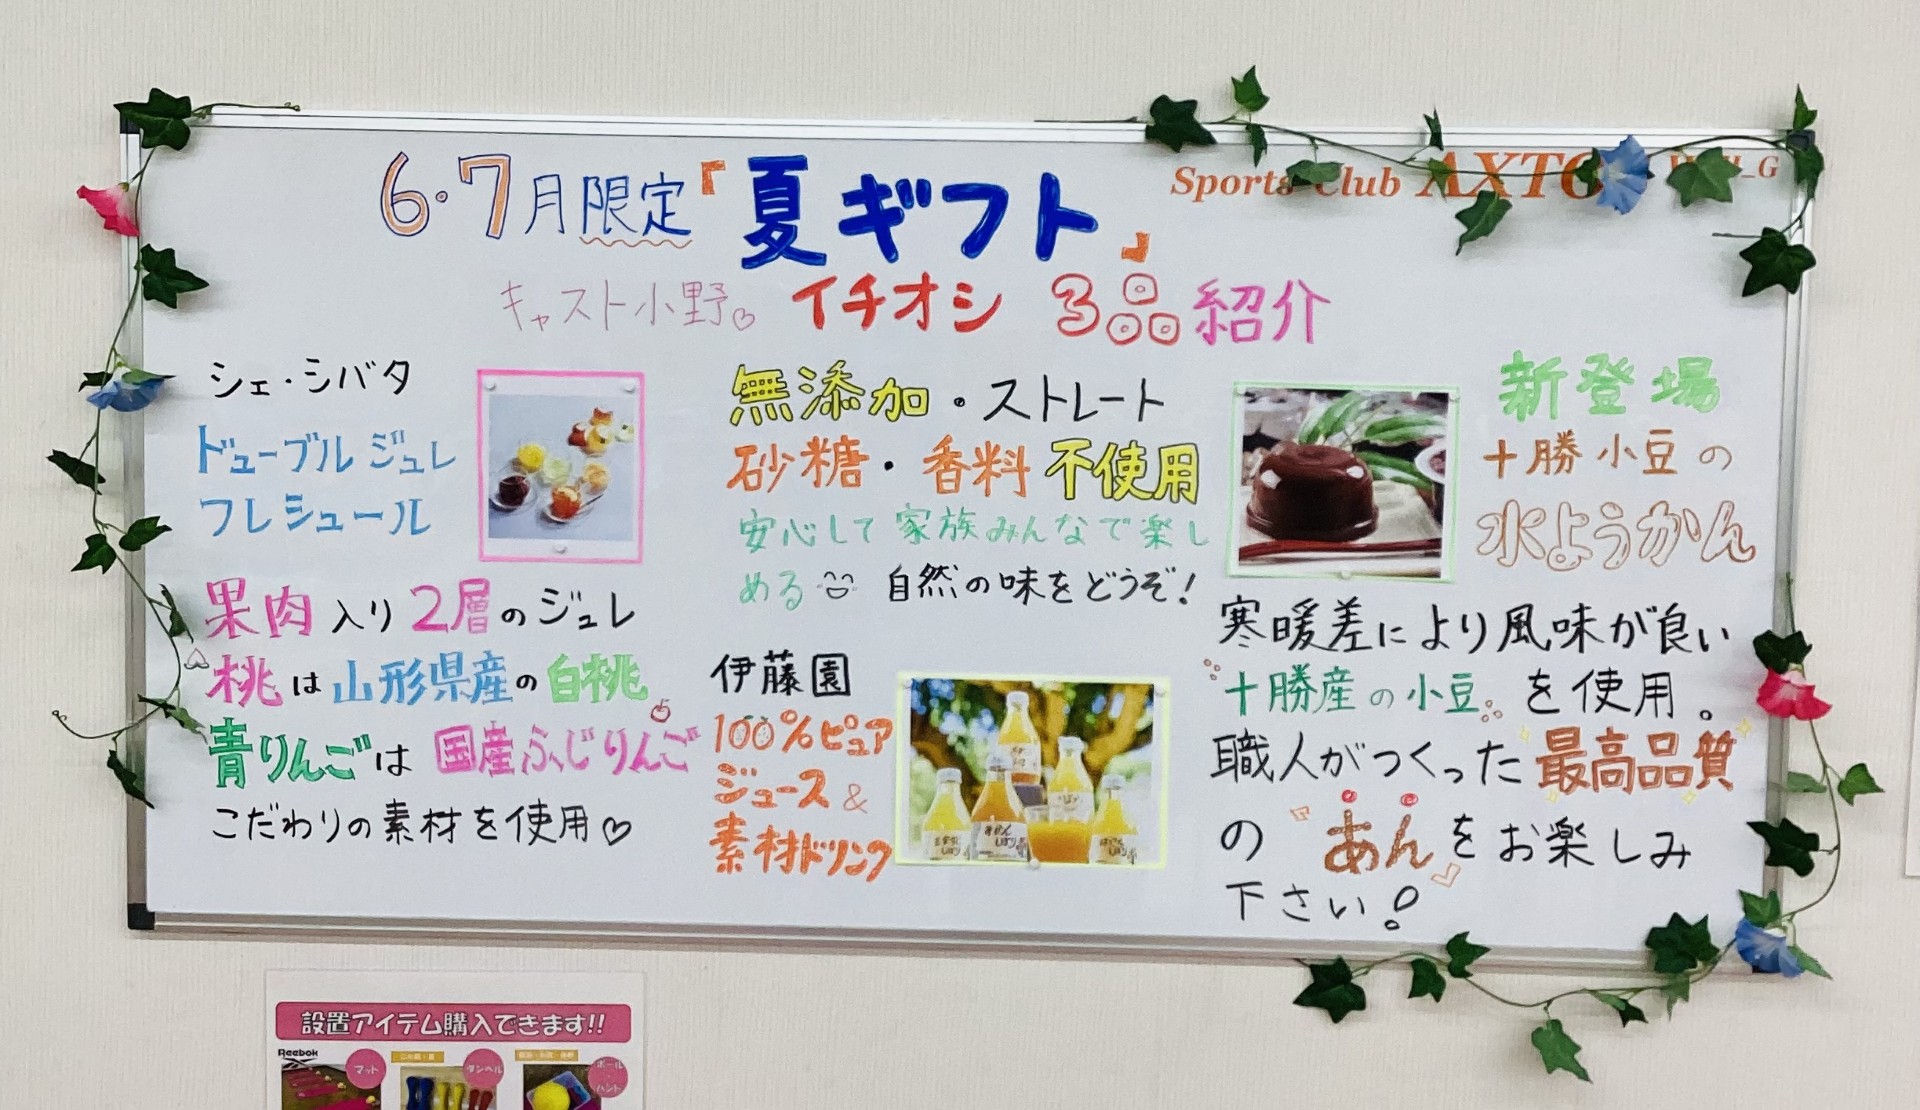 6・7月限定『夏ギフト』
Sports Club AXTO
キャスト小野♡ イチオシ 3品紹介
シェ・シバタ
ドゥーブルジュレ
フレシュール
果肉入り2層のジュレ
桃は山形県産の白桃
青りんごは国産ふじりんご
こだわりの素材を使用♡
無添加・ストレート
砂糖・香料不使用
安心して家族みんなで楽し
める 自然の味をどうぞ!
伊藤園
100%ピュア
ジュース&
素材ドリンク
新登場
十勝小豆の
水ようかん
寒暖差により風味が良い
十勝産の小豆を使用。
職人がつくった最高品質
の"あん"をお楽しみ
下さい!
設置アイテム購入できます!!
Reebok
マット
ダンベル